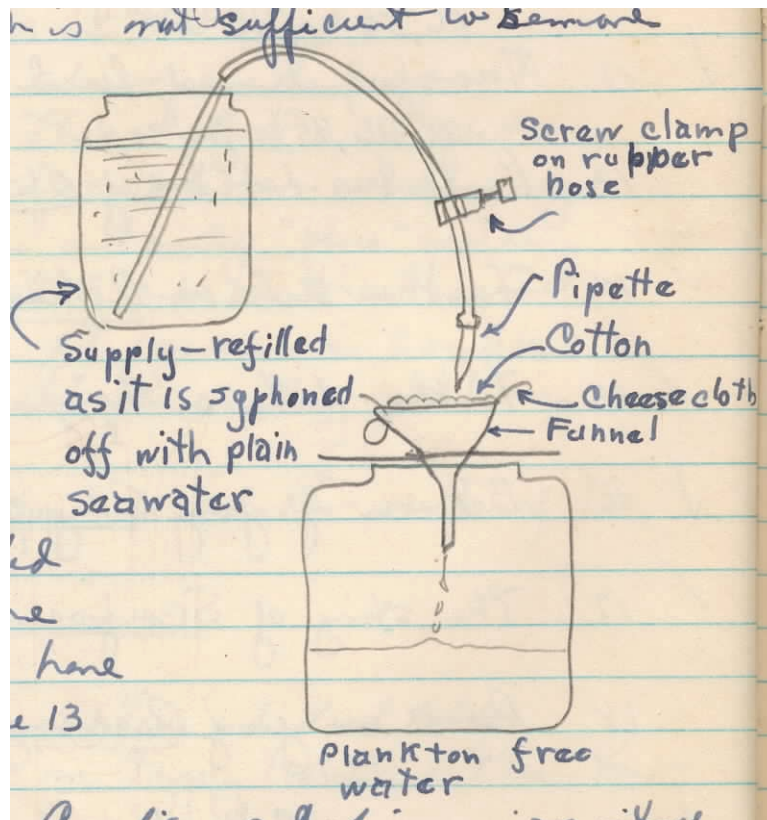 is not sufficient to remove
Screw clamp
on rupper
hose
Pipette
Cotton
Cheese cloth
Funnel
Supply-refilled
as it is syphoned
off with plain
seawater
have
13
Plankton free
water